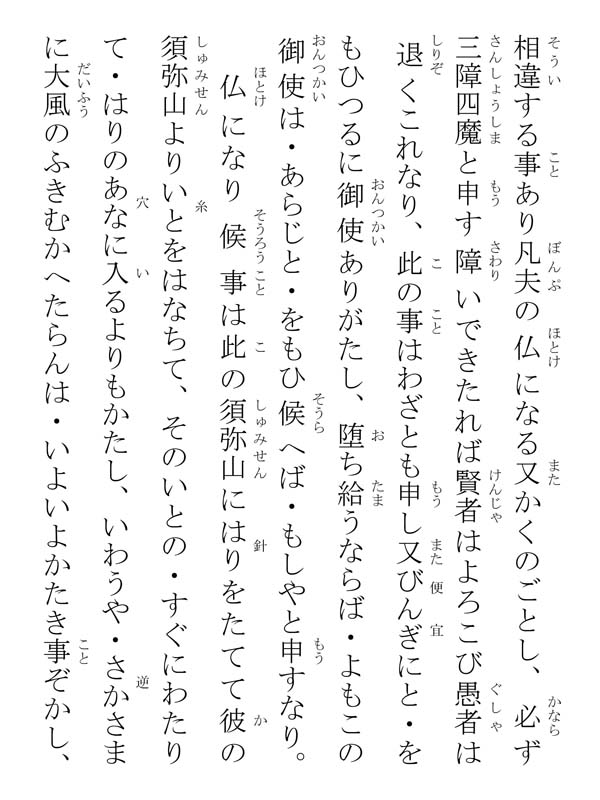 相違する事あり凡夫の仏になる又かくのごとし、必ず
三障四魔と申す障いできたれば賢者はよろこび愚者は
退くこれなり、此の事はわざとも申し又びんぎにと・を
もひつるに御使ありがたし、堕ち給うならば・よもこの
御使は・あらじと・をもひ候へば・もしやと申すなり。
仏になり候事は此の須弥山にはりをたてて彼の
須弥山よりいとをはなちて、そのいとの・すぐにわたり
て・はりのあなに入るよりもかたし、いわうや・さかさま
に大風のふきむかへたらんは・いよいよかたき事ぞかし、